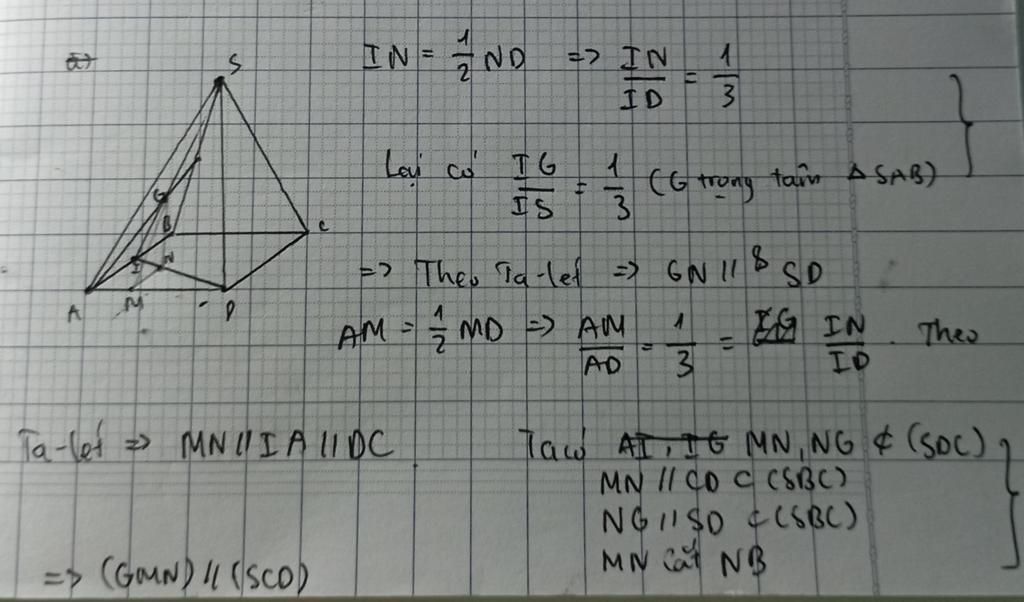 a)
S
G
B
C
I
N
A
M
D
IN = 1/2 ND => IN/ID = 1/3
Lại có IG/IS = 1/3 (G trọng tâm Δ SAB)
=> Theo Ta-let => GN // SD
AM = 1/2 MD => AM/AD = 1/3 = IN/ID. Theo
Ta-let => MN // IA // DC
Ta có MN, NG ⊄ (SDC)
MN // CD ⊂ (SBC)
NG // SD ⊂ (SBC)
MN cắt NB
=> (GMN) // (SCD)